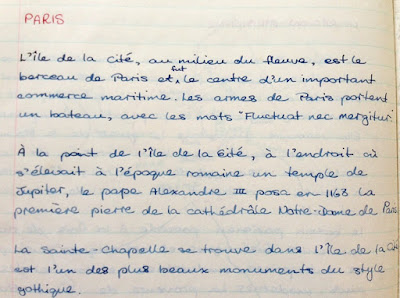 PARIS
L'île de la Cité, au milieu du fleuve, est le
berceau de Paris et fut le centre d'un important
commerce maritime. Les armes de Paris portent
un bateau, avec les mots "Fluctuat nec mergitur
À la point de l'île de la Cité, à l'endroit où
s'élevait à l'époque romaine un temple de
Jupiter, le pape Alexandre III posa en 1163 la
première pierre de la cathédrâle Notre-Dame de Paris
La Sainte-Chapelle se trouve dans l'île de la
est l'un des plus beaux monuments du style
gothique.